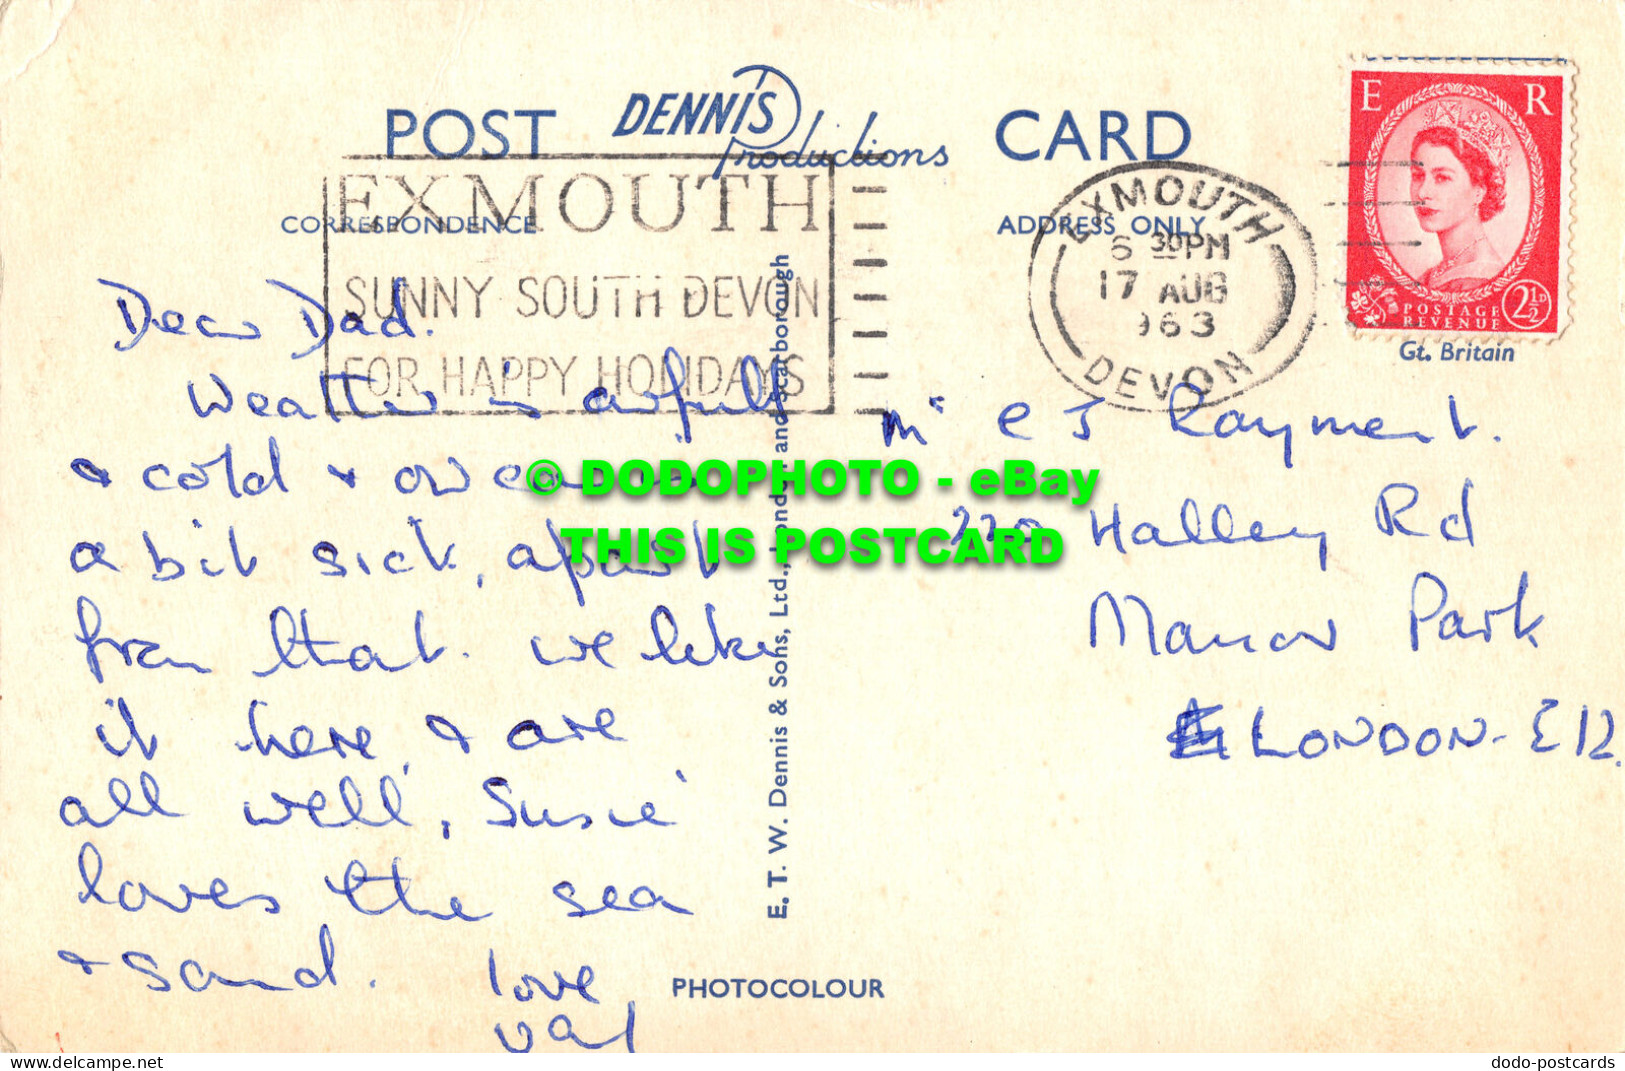 POST DENNIS Productions CARD
CORRESPONDENCE
ADDRESS ONLY
EXMOUTH
SUNNY SOUTH DEVON
FOR HAPPY HOLIDAYS
EXMOUTH
6 30PM
17 AUG
963
DEVON
E R
POSTAGE
REVENUE
2½D
Gt. Britain
Dear Dad.
Weather is awfull
& cold &
a bit sick, apart
from that. we like
it here, & are
all well, Susie
loves the sea
& sand. love
val
Mr E J Rayment.
220 Halley Rd
Manor Park
LONDON - E12.
E. T. W. Dennis & Sons, Ltd., London and Scarborough
PHOTOCOLOUR
© DODOPHOTO - eBay
THIS IS POSTCARD
delcampe.net
dodo-postcards